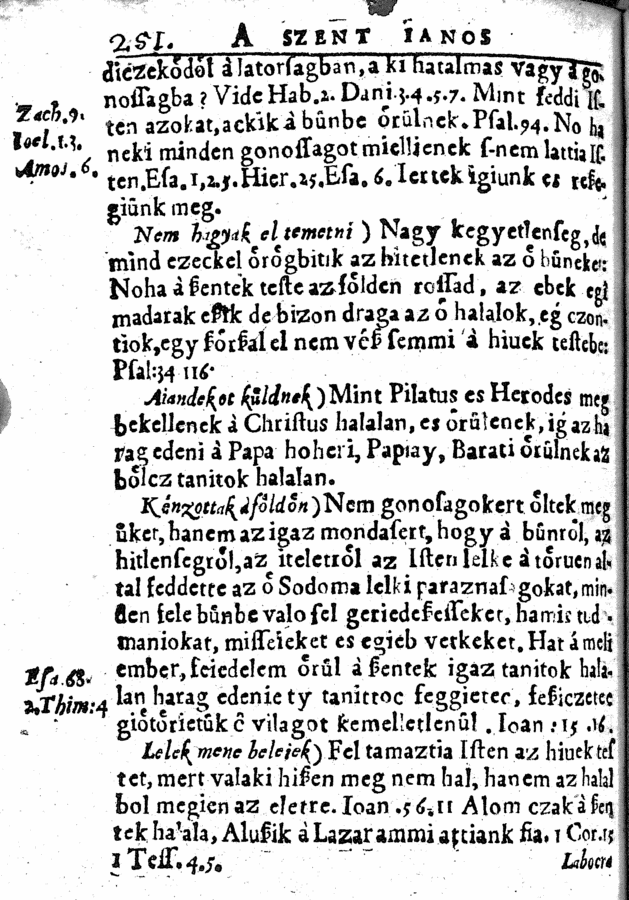 251. A SZENT IANOS
diczekődől à latorſagban, a ki hatalmas vagy à go-
noſſagba? Vide Hab.2. Dani.3.4.5.7. Mint feddi Iſ-
Zach.9.
ten azokat, ackik à bűnbe örülnek. Pſal.94. No ha
Ioel.1.3.
neki minden gonoſſagot mielljenek ſ-nem lattia Iſ-
Amos.6.
ten. Eſa.1,2.5. Hier.25. Eſa. 6. Iertek igiunk es reſe-
giünk meg.
Nem hagyak el temetni) Nagy kegyetlenſeg, de
mind ezeckel örögbitik az hitetlenek az ő bűneket:
Noha à ßentek teſte az főlden roſſad, az ebek egi
madarak eßik de bizon draga az ő halalok, eg czon-
tiok, egy ßőrßal el nem véß ſemmi à hiuek teſtebe:
Pſal:34 116.
Aiandekot küldnek) Mint Pilatus es Herodes meg
bekellenek à Chriſtus halalan, es örülenek, ig az ha
rag edeni à Papa hoheri, Papiay, Barati örülnek az
bőlcz tanitok halalan.
Kénzottak à főldőn) Nem gonoſagokert őltek meg
űker, hanem az igaz mondaſert, hogy à bűnről, az
hitlenſegről, az iteletről az Iſten lelke à tőruen al-
tal feddette az ő Sodoma lelki paraznaſagokat, min-
den fele bűnbe valo fel geriedeßeſſeket, hamis tud-
maniokat, miſſeieket es egieb vetkeket. Hat á meli
Eſa.68.
ember, feiedelem örül à ßentek igaz tanitok hala-
2.Thim:4
lan harag edenie ty tanittoc feggietec, feßiczetec
giőtőrietűk ĉ vilagot kemelletlenűl. Ioan :15 .16.
Lelek mene belejek) Fel tamaztia Iſten az hiuek teſ
tet, mert valaki hißen meg nem hal, hanem az halal
bol megien az eletre. Ioan .5 6.11 Alom czak à ßen
tek halala, Alußik à Lazar ammi attiank fia. 1 Cor.15
1 Teſſ. 4.5.
Labocra